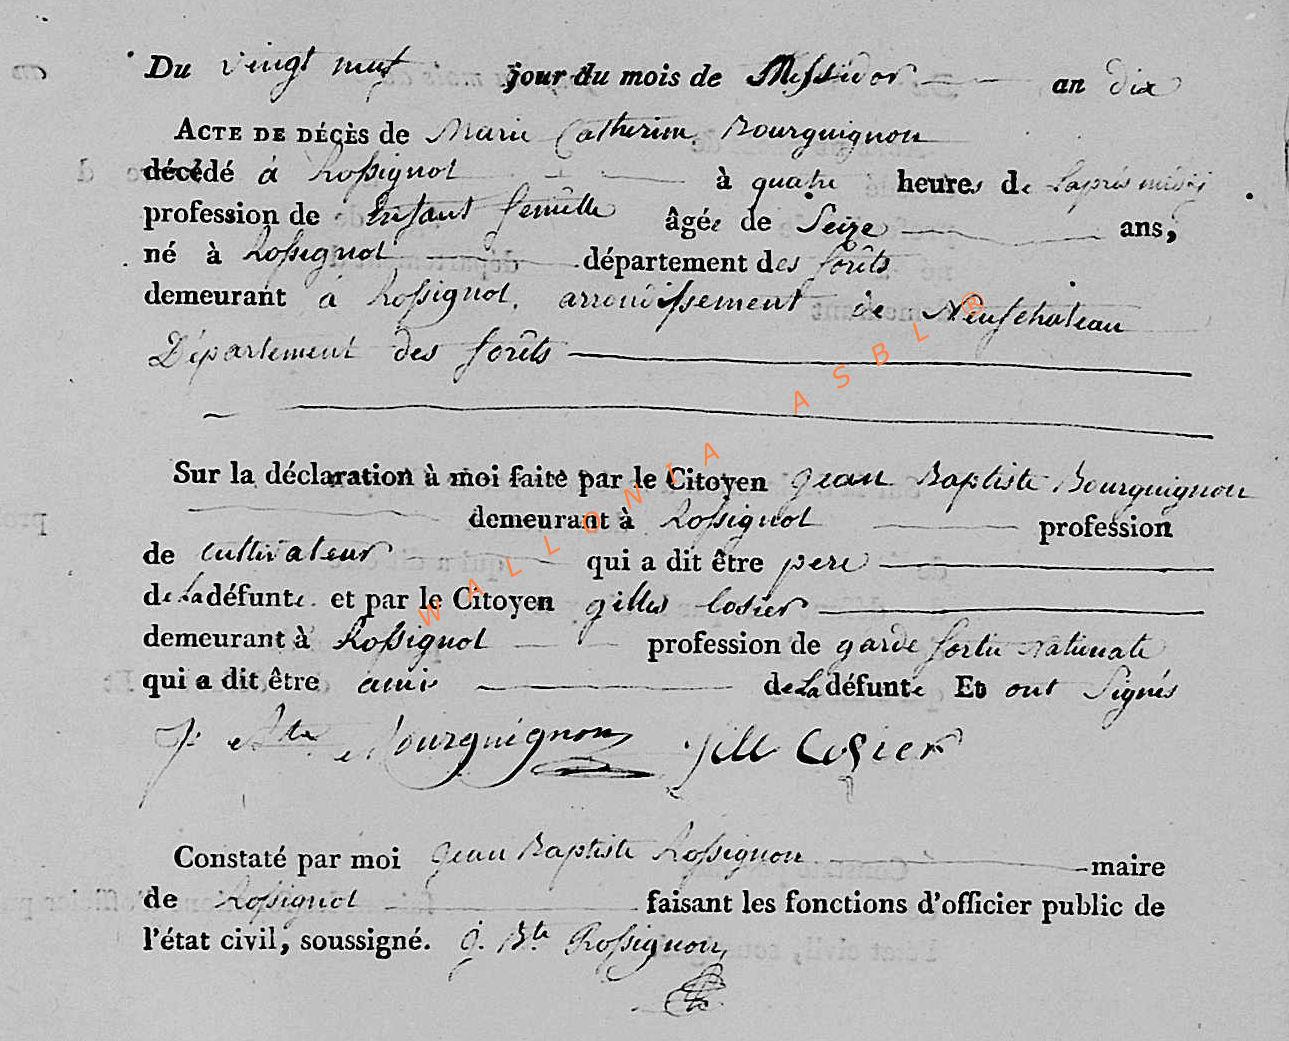 Du vingt neuf jour du mois de Messidor an dix
ACTE DE DÉCÈS de Marie Catherine Bourguignon
décédé à Rossignol à quatre heures de Laprés midi
profession de Enfant femelle âgée de Seize ans,
né à Rossignol département des forêts
demeurant à Rossignol, arrondissement de Neufchateau
Département des forêts
Sur la déclaration à moi faite par le Citoyen Jean Baptiste Bourguignon
demeurant à Rossignol profession
de cultivateur qui a dit être pere
de La défunte et par le Citoyen gilles Cosier
demeurant à Rossignol profession de garde nationale
qui a dit être amis de La défunte Et ont Signés
J. Bte Bourguignon Gille Cosier
Constaté par moi Jean Baptiste Rossignon maire
de Rossignol faisant les fonctions d'officier public de
l'état civil, soussigné. J. Bte Rossignon
WALLONIA ASBL ®